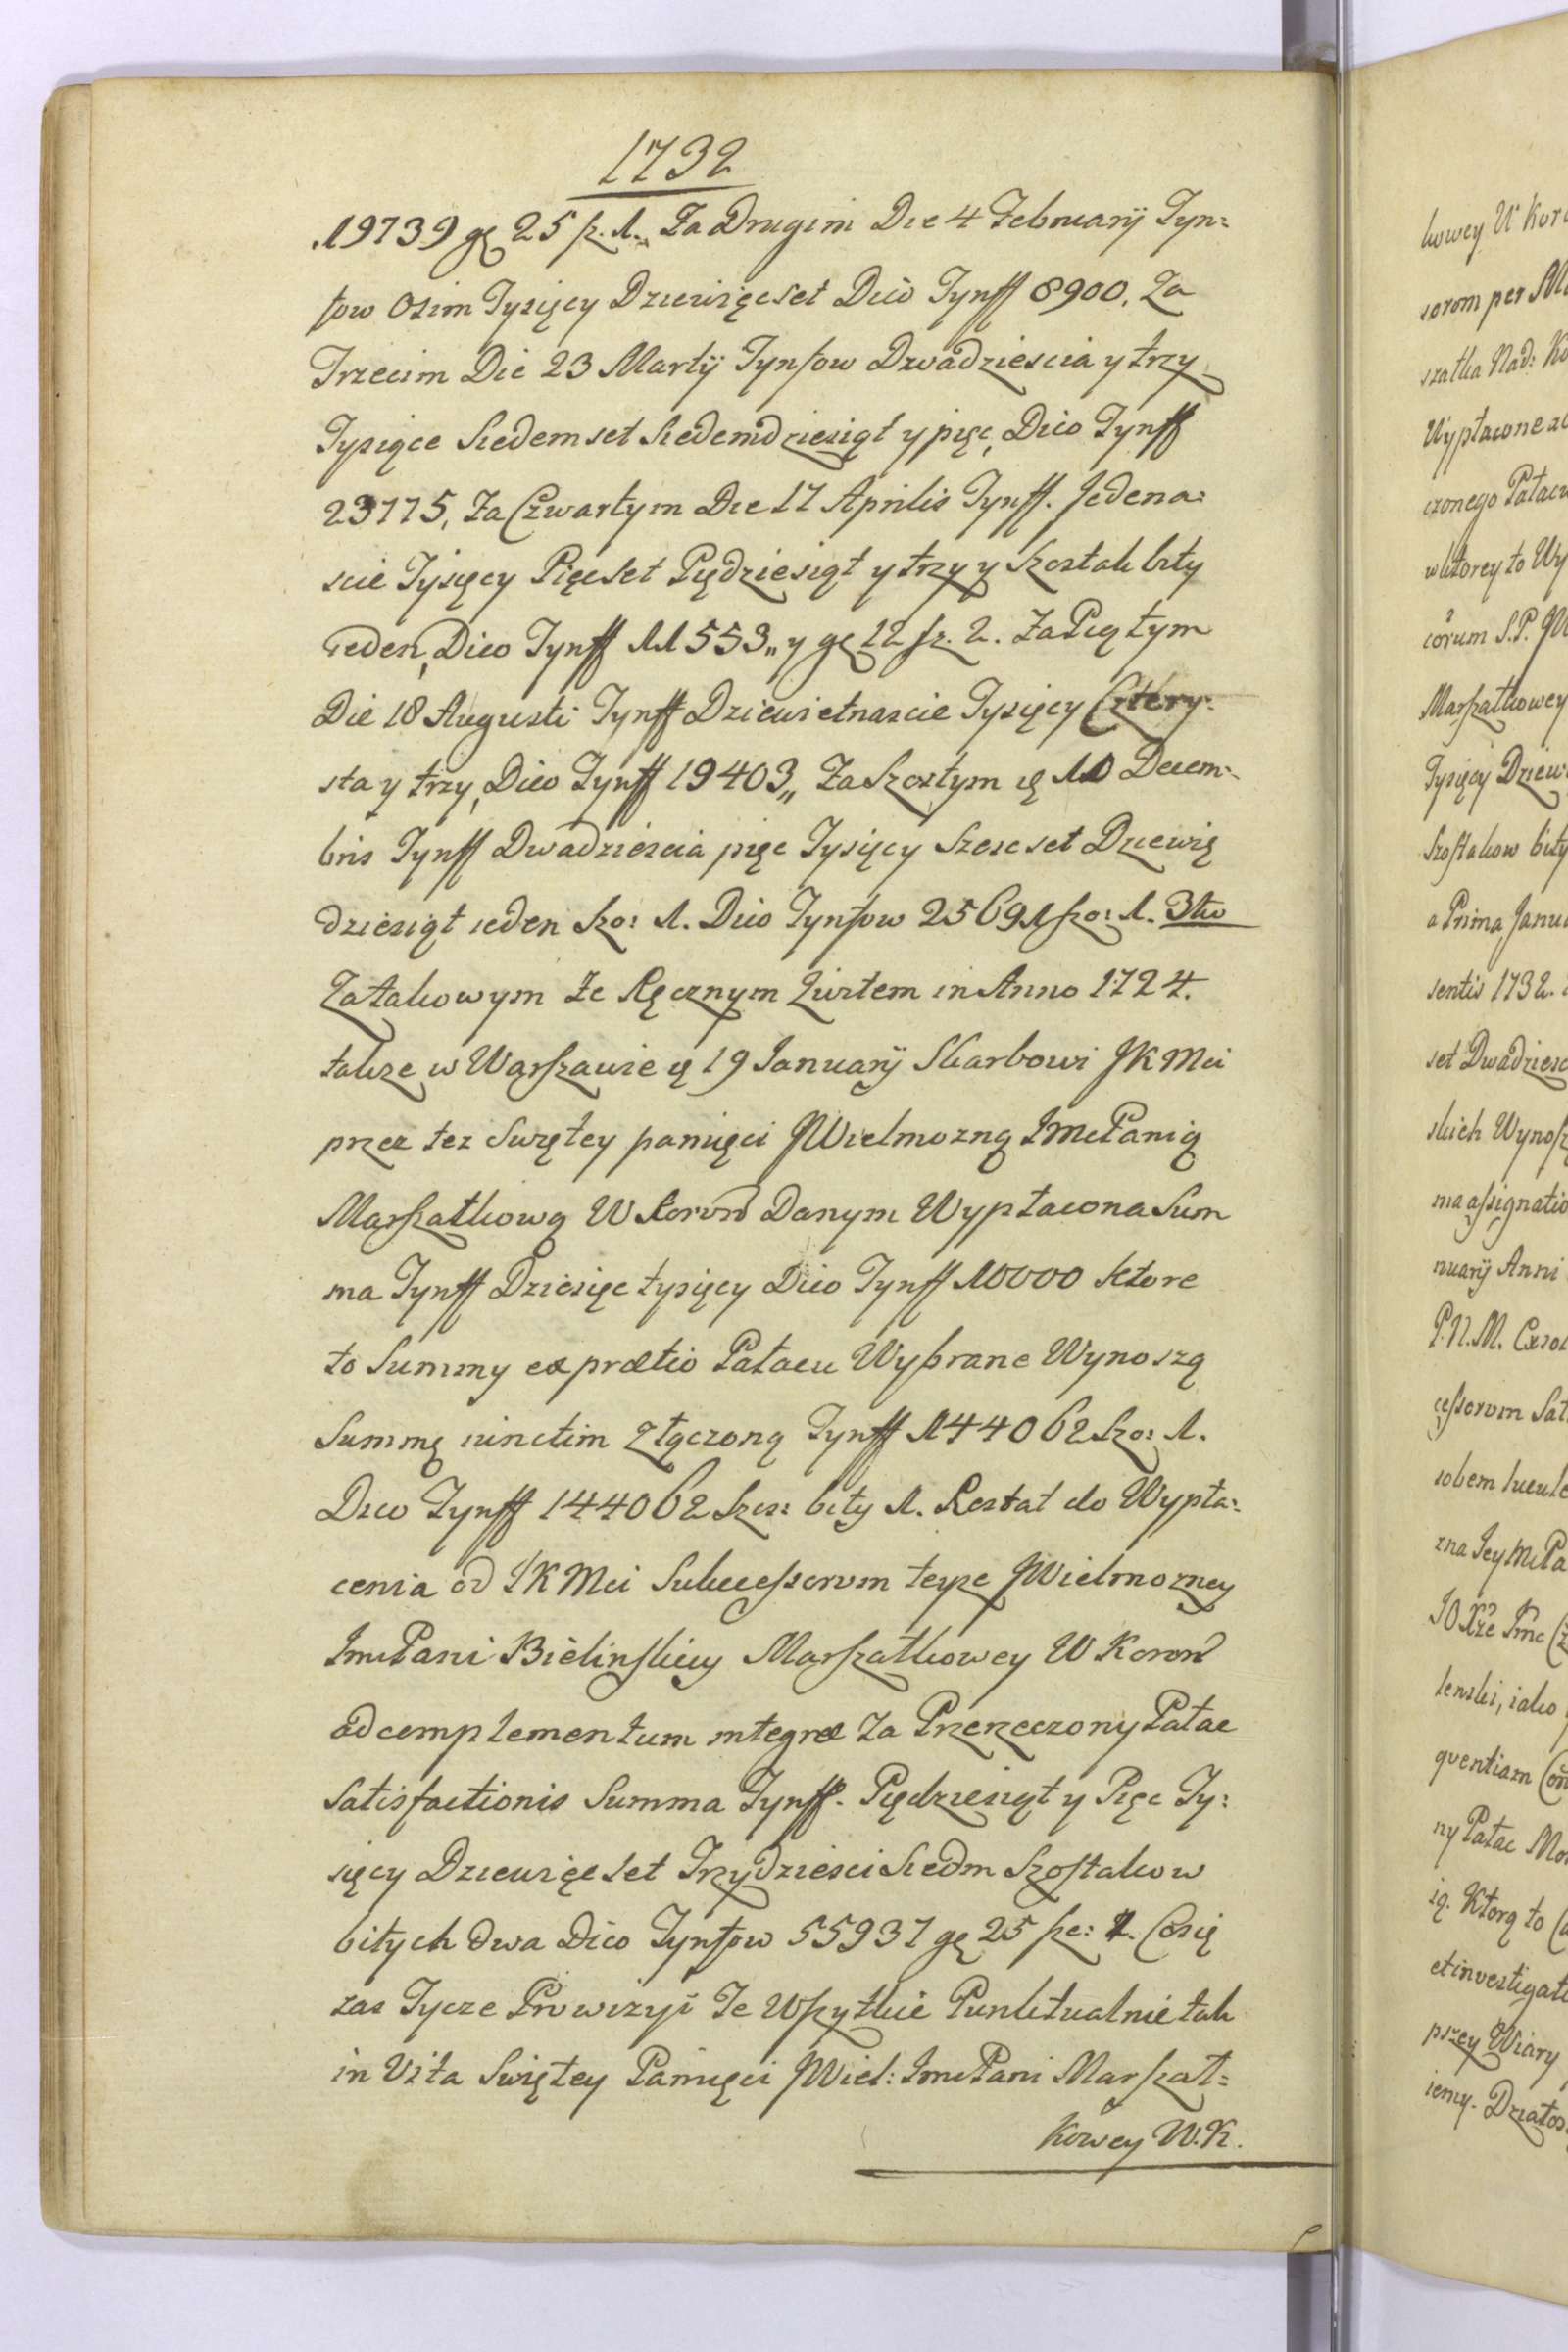 1732
19739 gę 25 sz. 1. Za Drugim Die 4 Februarÿ Tyn:
fow Osim Tysięcy Dziewięcset Dico Tynff 8900, Za
Trzecim Die 23 Martÿ Tynfow Dwadziescia y trzy
Tysiące Siedemset Siedemdziesiąt y pięc, Dico Tynff
23775, Za Czwartym Die 17 Aprilis Tynff. Jedena:
scie Tysięcy Pięcset Piędziesiąt y trzy y Szostak bity
ieden, Dico Tynff 11553,, y gę 12 sz. 2. Za Piątym
Die 18 Augusti Tynff Dziewietnascie Tysięcy Cztery:
sta y trzy, Dico Tynff 19403,, Za Szostym 10 Decem:
bris Tynff Dwadziescia pięc Tysięcy Szescset Dziewię
dziesiąt ieden Szo: 1. Dico Tynfow 25691 szo: 1. 3tio
Zatakowym Ze Ręcznym Qwitem in Anno 1724.
takze w Warszawie 19 Januarÿ Skarbowi JK Mci
przez tez Swiętey pamięci JWielmozną ImcPanią
Marszałkową W Koron Danym Wypłacona Sum
ma Tynff Dziesięc tysięcy Dico Tynff 10000 Ktore
to Summy ex prætio Pałacu Wybrane Wynoszą
Summę iunctim Złączoną Tynff 144062 Szo: 1.
Dico Tynff 144062 Szos: bity 1. Restat do Wypła:
cenia od JK Mci Sukcessorum teyze JWielmozney
ImcPani Bielinskiey Marszałkowey W Koron
ad complementum integræ Za Przerzeczony Pałac
Satisfactionis Summa Tynff. Piędziesiąt y Pięc Ty:
sięcy Dziewięcset Trzydziesci Siedm Szostakow
bitych dwa Dico Tynfow 55937 gę 25 sze: Cosię
zas Tycze Prowizyi Te Wszytkie Punktualnie tak
in Vita Swiętey Pamięci JWiel: ImcPani Marszał=
Kowey W.K.
kowey W Koro
sorom per Ma
szałka Nad: Ko
Wypłacone
czonego Pałacu
wktorey to Wy
corum S.P.
Marszałkowey
Tysięcy Dziew
Szostakow bity
a Prima Janu
sentis 1732.
set Dwadziesc
skich Wynosz
ma assignatio
nuarÿ Anni
P.N.M.
cessorum Sat
sobem
zna Jey McPa
JO Xże Jmc
lenski, iako
quentiam
ny Pałac
ią. Ktorą to
et investigat
przey Wiary
iemy. Działos